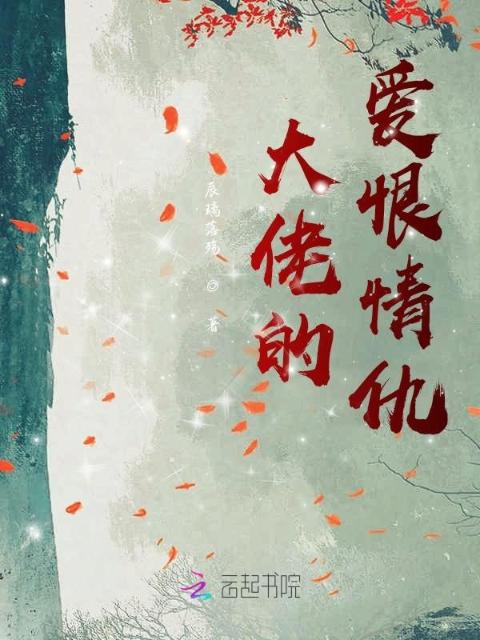 大佬的
爱恨情仇
辰瑀落瑀◎著
云起书院